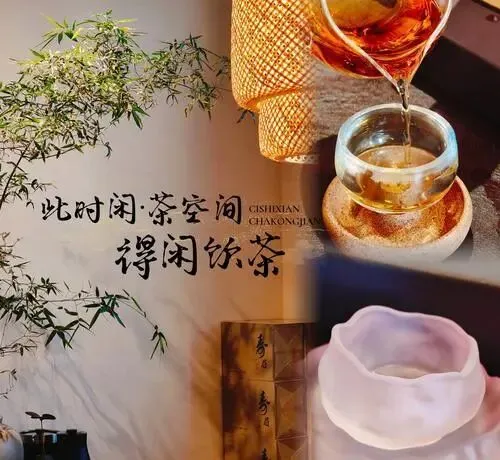 此时闲·茶空间
CISHIXIAN
CHAKONGJIAN
得闲饮茶
寿
寿
寿